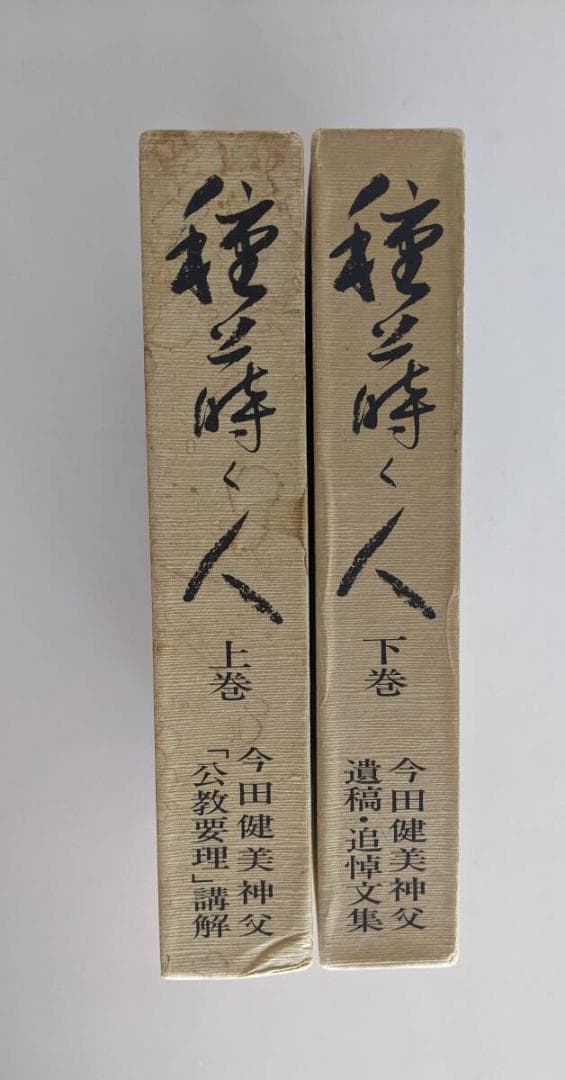 種蒔く人
上巻
今田健美神父
「公教要理」講解
種蒔く人
下巻
今田健美神父
遺稿・追悼文集